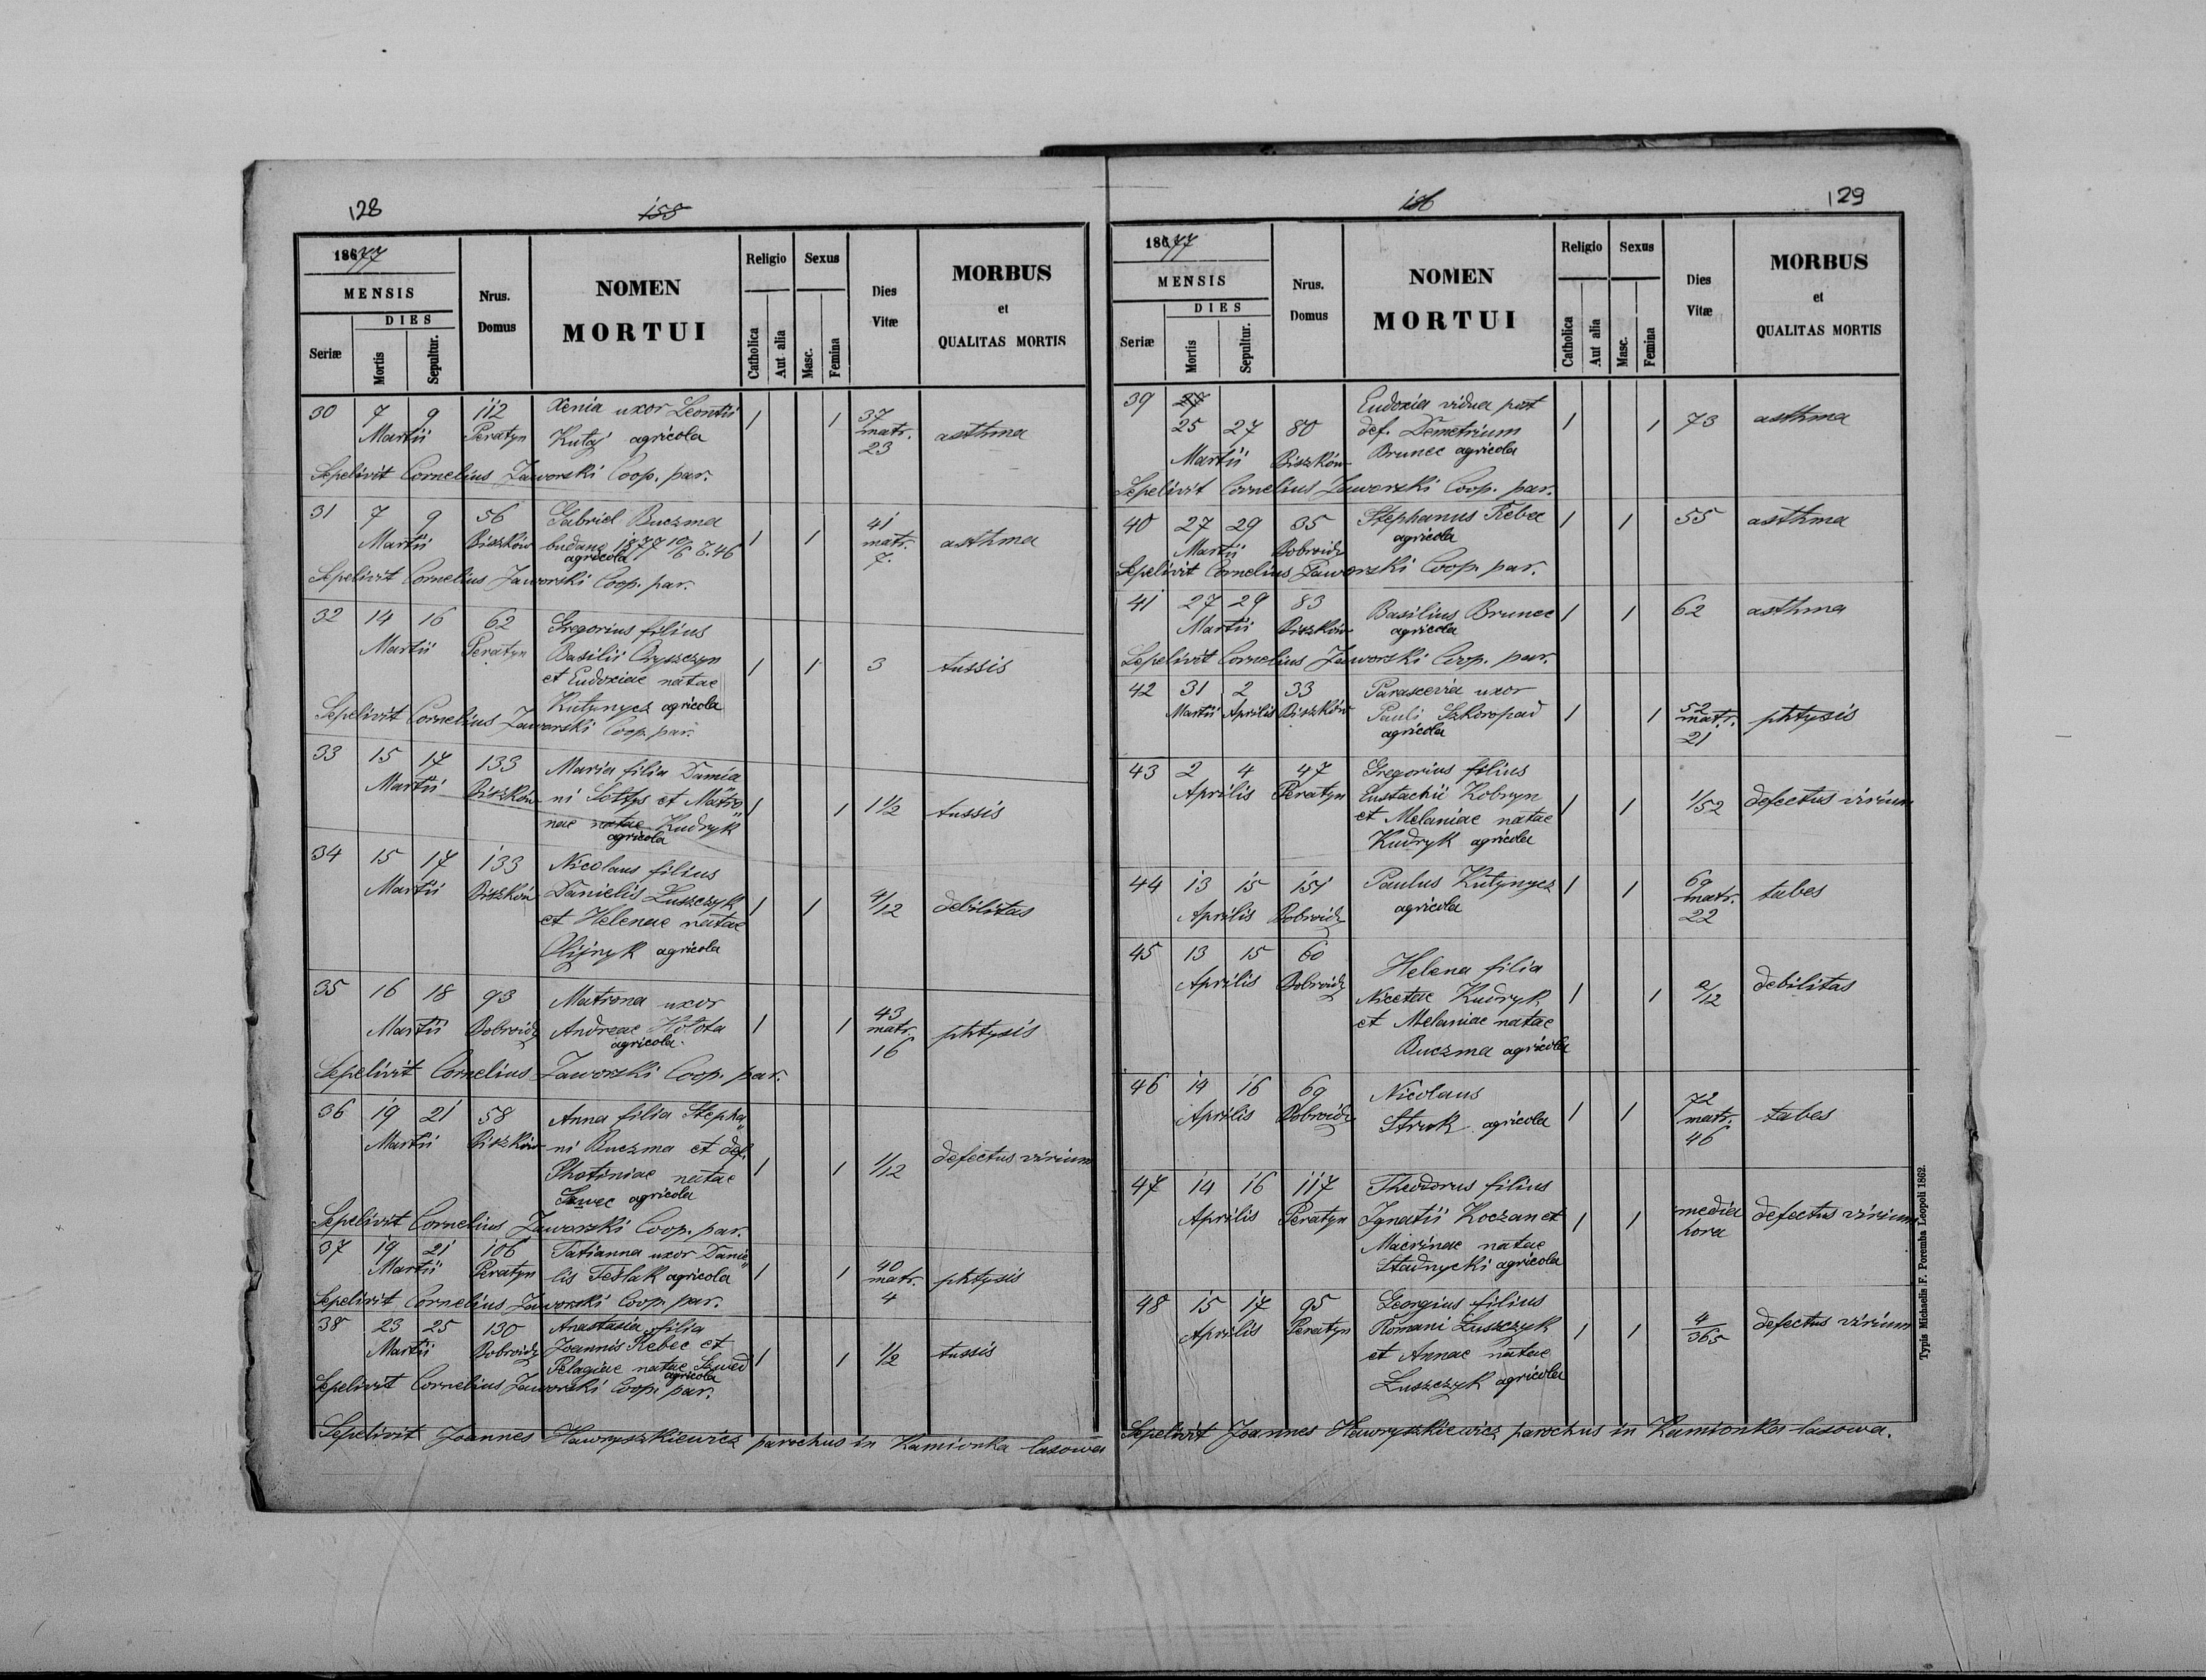 128
158
1877
MENSIS
DIES
Seriæ
Mortis
Sepultur.
Nrus. Domus
NOMEN
MORTUI
Religio
Catholica
Aut alia
Sexus
Masc.
Femina
Dies Vitæ
MORBUS
et
QUALITAS MORTIS
30 7 9 112 Xenia uxor Leontii 1 1 37
Martii Peratyn Kutaj agricola matr. asthma
23
Sepelivit Cornelius Jaworski Coop. par.
31 7 9 56 Gabriel Buczma 1 1 41
Martii Biszków budane 1877 10/6 Z. 46 matr. asthma
agricola 7.
Sepelivit Cornelius Jaworski Coop. par.
32 14 16 62 Gregorius filius
Martii Peratyn Basilii Oryszczyn
et Eudoxiae natae 1 1 3 tussis
Kutynycz agricola
Sepelivit Cornelius Jaworski Coop. par.
33 15 17 133 Maria filia Damia
Martii Biszków ni Sołtys et Matro„ 1 1 1 1/2 tussis
nae natae Kudryk
agricola
34 15 17 133 Nicolaus filius
Martii Biszków Danielis Łuszczyk 1 1 4/12 debilitas
et Helenae natae
Olijnyk agricola
35 16 18 93 Matrona uxor 43
Martii Dobroidy Andreae Hołota 1 1 matr. phtysis
agricola 16
Sepelivit Cornelius Jaworski Coop. par.
36 19 21 58 Anna filia Stepha„
Martii Biszków ni Buczma et def.
Photiniae natae 1 1 1/12 defectus virium
Szwec agricola
Sepelivit Cornelius Jaworski Coop. par.
37 19 21 106 Tatianna uxor Danie„ 40
Martii Peratyn lis Teslak agricola 1 1 matr. phtysis
4
Sepelivit Cornelius Jaworski Coop. par.
38 23 25 130 Anastasia filia
Martii Dobroidy Joannis Rebec et
Pelagiae natae Szwed 1 1 1/2 tussis
agricola
Sepelivit Cornelius Jaworski Coop. par.
Sepelivit Joannes Hawryszkiewicz parochus in Kamionka lasowa
129
156
1877
MENSIS
DIES
Seriæ
Mortis
Sepultur.
Nrus. Domus
NOMEN
MORTUI
Religio
Catholica
Aut alia
Sexus
Masc.
Femina
Dies Vitæ
MORBUS
et
QUALITAS MORTIS
39 Eudoxia vidua post
25 27 80 def. Demetrium 1 1 73 asthma
Martii Biszków Brunec agricola
Sepelivit Cornelius Jaworski Coop. par.
40 27 29 35 Stephanus Rebec 1 1 55 asthma
Martii Dobroidy agricola
Sepelivit Cornelius Jaworski Coop. par.
41 27 29 83 Basilius Brunec 1 1 62 asthma
Martii Biszków agricola
Sepelivit Cornelius Jaworski Coop. par.
42 31 2 33 Parascevia uxor 52
Martii Aprilis Biszków Pauli Szkoropad 1 1 matr. phtysis
agricola 21
43 2 4 47 Gregorius filius
Aprilis Peratyn Eustachii Kobryn 1 1 1/52 defectus virium
et Melaniae natae
Kudryk agricola
44 13 15 151 Paulus Kutynycz 1 1 69
Aprilis Dobroidy agricola matr. tabes
22
45 13 15 60 Helena filia
Aprilis Dobroidy Nicetae Kudryk 1 1 2/12 debilitas
et Melaniae natae
Buczma agricola
46 14 16 69 Nicolaus 72
Aprilis Dobroidy Struk agricola 1 1 matr. tabes
46
47 14 16 117 Theodorus filius
Aprilis Peratyn Ignatii Koczan et 1 1 media hora defectus virium
Macrinae natae
Stadnycki agricola
48 15 17 95 Georgius filius
Aprilis Peratyn Romani Łuszczyk 1 1 4/365 defectus virium
et Annae natae
Łuszczyk agricola
Sepelivit Joannes Hawryszkiewicz parochus in Kamionka lasowa.
Typis Michaelis F. Poremba Leopoli 1862.